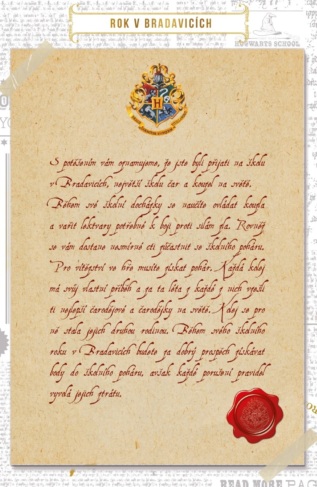 ROK V BRADAVICÍCH
HOGWARTS SCHOOL
S potěšením vám oznamujeme, že jste byli přijati na školu
v Bradavicích, největší školu čar a kouzel na světě.
Během své školní docházky se naučíte ovládat kouzla
a vařit lektvary potřebné k boji proti silám zla. Rovněž
se vám dostane nesmírné cti zúčastnit se školního poháru.
Pro vítězství ve hře musíte získat pohár. Každá kolej
má svůj vlastní příběh a za ta léta z každé z nich vyšli
ti nejlepší čarodějové a čarodějky na světě. Kolej se pro
ně stala jejich druhou rodinou. Během svého školního
roku v Bradavicích budete za dobrý prospěch získávat
body do školního poháru, avšak každé porušení pravidel
vyvolá jejich ztrátu.
READ MORE PAG